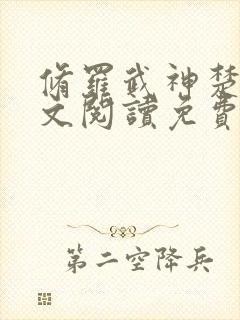 脩羅武神楚
文閱讀免費
第二空降兵